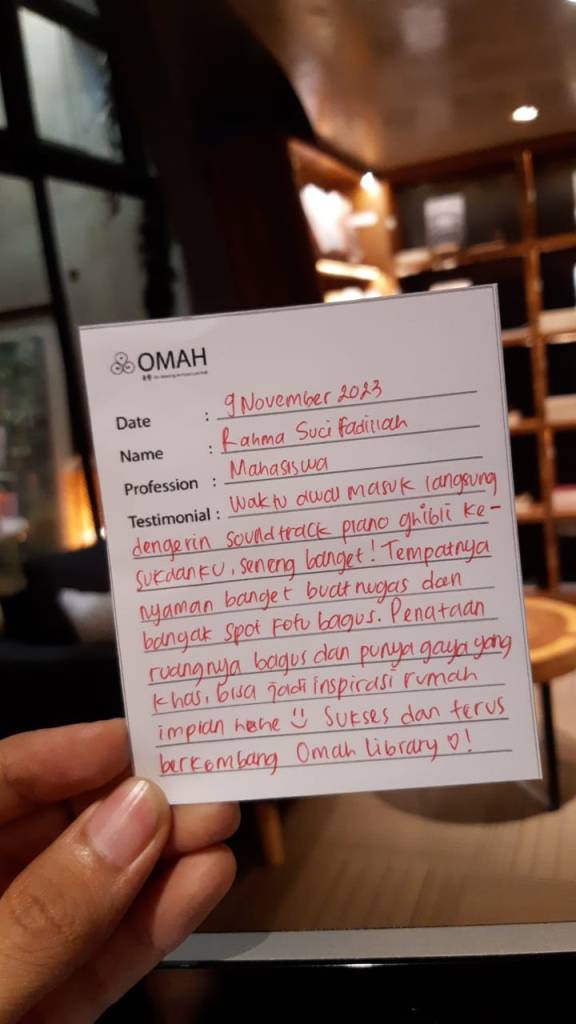 OMAH
Date : 9 November 2023
Name : Rahma Suci Fadillah
Profession : Mahasiswa
Testimonial : Waktu awal masuk langsung
dengerin soundtrack piano ghibli ke-
sukaanku, seneng banget! Tempatnya
nyaman banget buat nugas dan
bangak spot foto bagus. Penataan
ruangnya bagus dan punya gaya yang
khas, bisa jadi inspirasi rumah
impian hehe Sukses dan terus
berkembang Omah Library ♡!